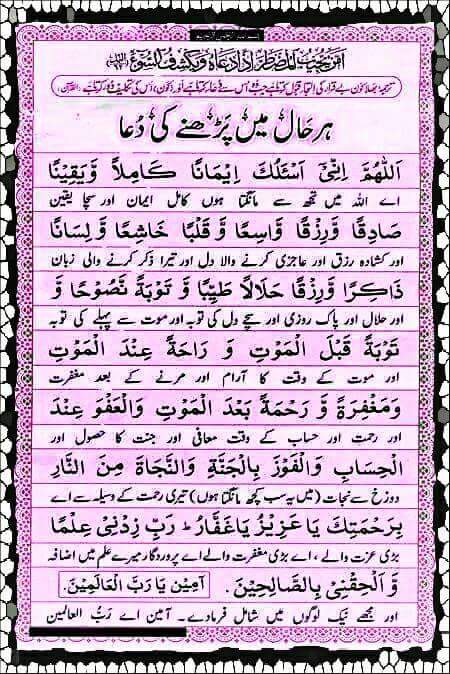 بسم اللہ الرحمن الرحیم
اَمَّنْ يُّجِيْبُ الْمُضْطَرَّ اِذَا دَعَاهُ وَيَكْشِفُ السُّوْٓءَ
ہر حال میں پڑھنے کی دُعا
اَللّٰهُمَّ اِنِّیْ اَسْئَلُكَ اِیْمَانًا كَامِلاً وَّیَقِیْنًا
اے اللہ میں تجھ سے مانگتا ہوں کامل ایمان اور سچا یقین
صَادِقًا وَّرِزْقًا وَاسِعًا وَّ قَلْبًا خَاشِعًا وَّ لِسَانًا
اور کشادہ رزق اور عاجزی کرنے والا دل اور تیرا ذکر کرنے والی زبان
ذَاكِرًا وَّرِزْقًا حَلَالاً طَیِّبًا وَّ تَوْبَةً نَّصُوْحًا وَّ
اور حلال اور پاک روزی اور سچے دل کی توبہ اور موت سے پہلے کی توبہ
تَوْبَةً قَبْلَ الْمَوْتِ وَ رَاحَةً عِنْدَ الْمَوْتِ
اور موت کے وقت کا آرام اور مرنے کے بعد مغفرت
وَمَغْفِرَةً وَّ رَحْمَةً بَعْدَ الْمَوْتِ وَالْعَفْوَ عِنْدَ
اور رحمت اور حساب کے وقت معافی اور جنت کا حصول اور
الْحِسَابِ وَالْفَوْزَ بِالْجَنَّةِ وَالنَّجَاةَ مِنَ النَّارِ
دوزخ سے نجات (میں یہ سب کچھ مانگتا ہوں) تیری رحمت کے وسیلہ سے اے
بِرَحْمَتِكَ یَا عَزِیْزُ یَا غَفَّارُ ۔ رَبِّ زِدْنِیْ عِلْمًا
بڑی عزت والے، اے بڑی مغفرت والے اے پروردگار میرے علم میں اضافہ
وَّ اَلْحِقْنِیْ بِالصَّالِحِیْنَ۔ آمِیْن یَا رَبَّ الْعَالَمِیْنَ۔
اور مجھے نیک لوگوں میں شامل فرمادے۔ آمین اے رَبُّ العالمین